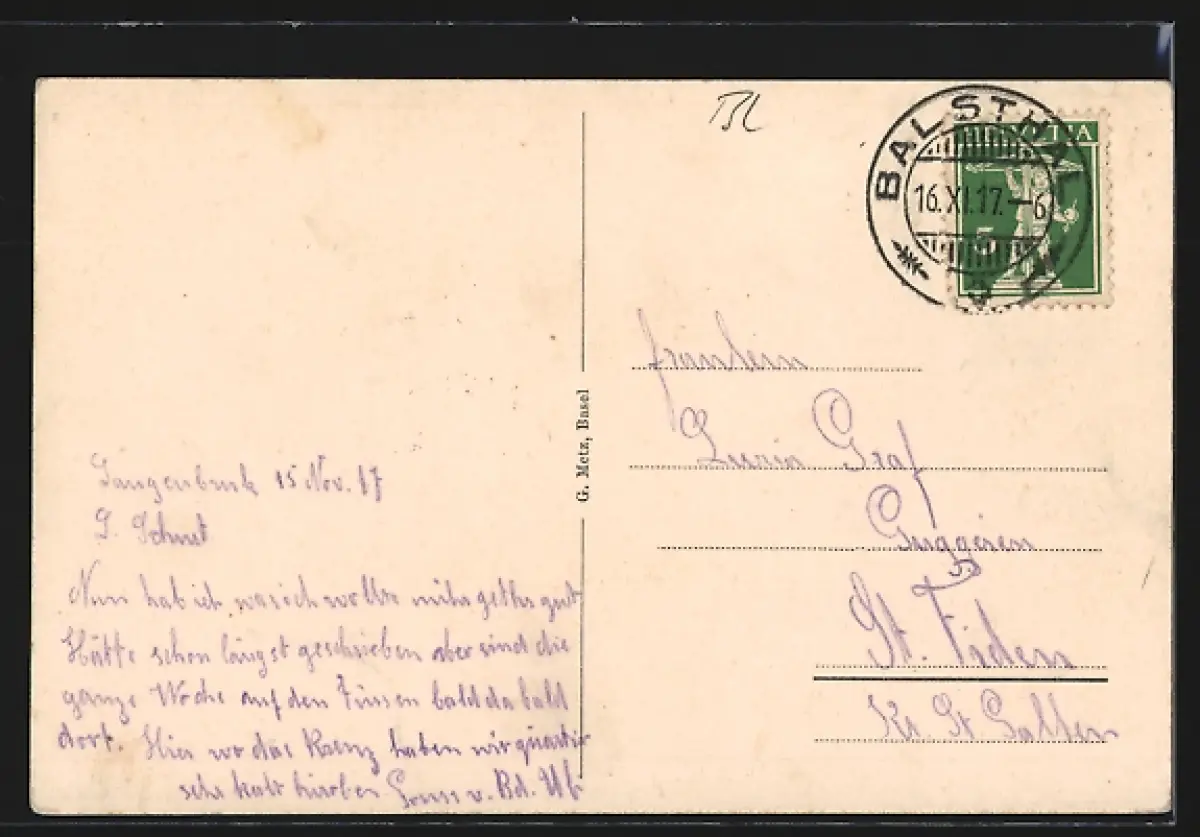 BL
BALSTHAL
16.XI.17.-6
HELVETIA
5
Fräulein
Graf
Guggeien
St. Fiden
Kt. St Gallen
G. Metz, Basel
Langenbruk 15 Nov. 17
L.
Nun hab ich was ich wollte mihr geths gut
Hätte schon längst geschrieben aber sind die
ganze Woche auf den Füssen bald da bald
dort. Hier wo das Kreuz haben wir quartir
sehr kalt hieroben Gruss v. Bd.